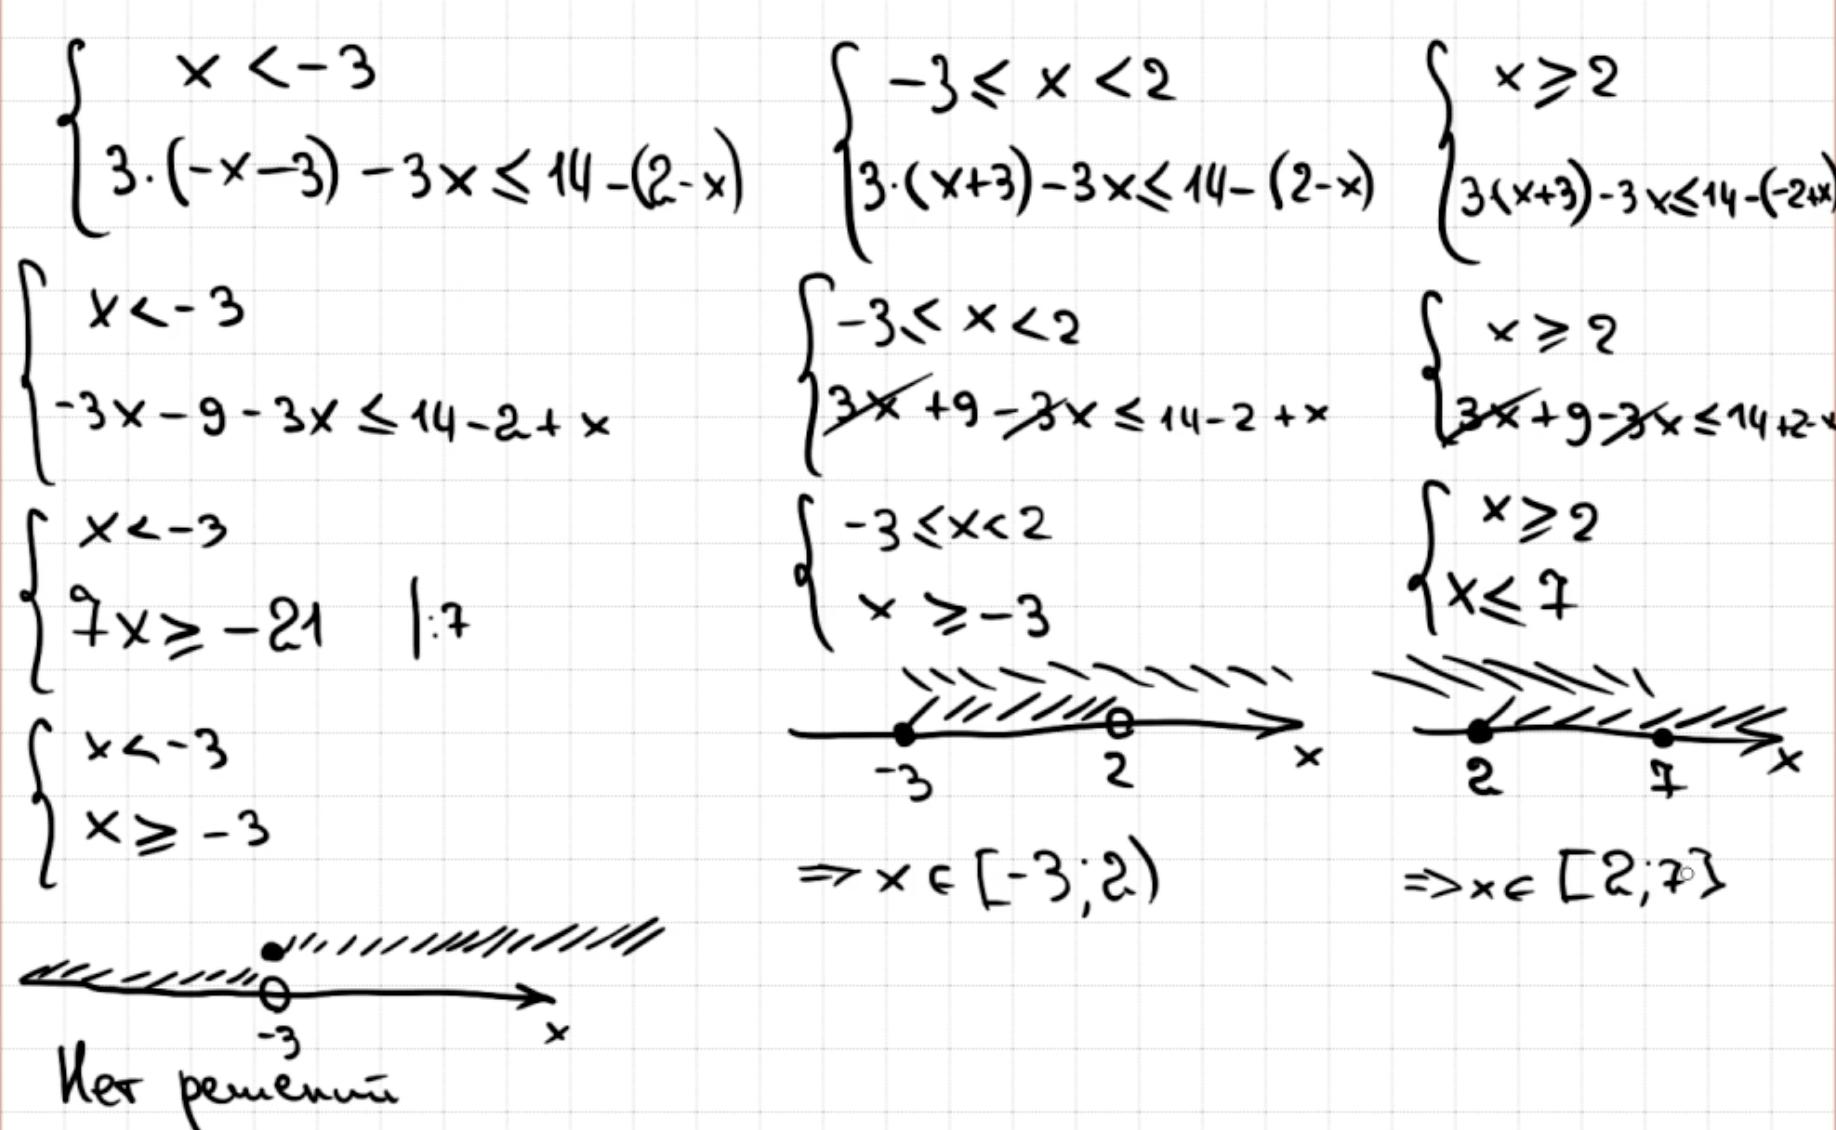 x < -3
3·(-x-3) - 3x ≤ 14-(2-x)
x < -3
-3x - 9 - 3x ≤ 14-2+x
x < -3
7x ≥ -21 |:7
x < -3
x ≥ -3
-3
x
Нет решений
-3 ≤ x < 2
3·(x+3) - 3x ≤ 14-(2-x)
-3 ≤ x < 2
3x + 9 - 3x ≤ 14-2+x
-3 ≤ x < 2
x ≥ -3
-3 2 x
⇒ x ∈ [-3;2)
x ≥ 2
3(x+3) - 3x ≤ 14-(-2+x)
x ≥ 2
3x + 9 - 3x ≤ 14+2-x
x ≥ 2
x ≤ 7
2 7 x
⇒ x ∈ [2;7]